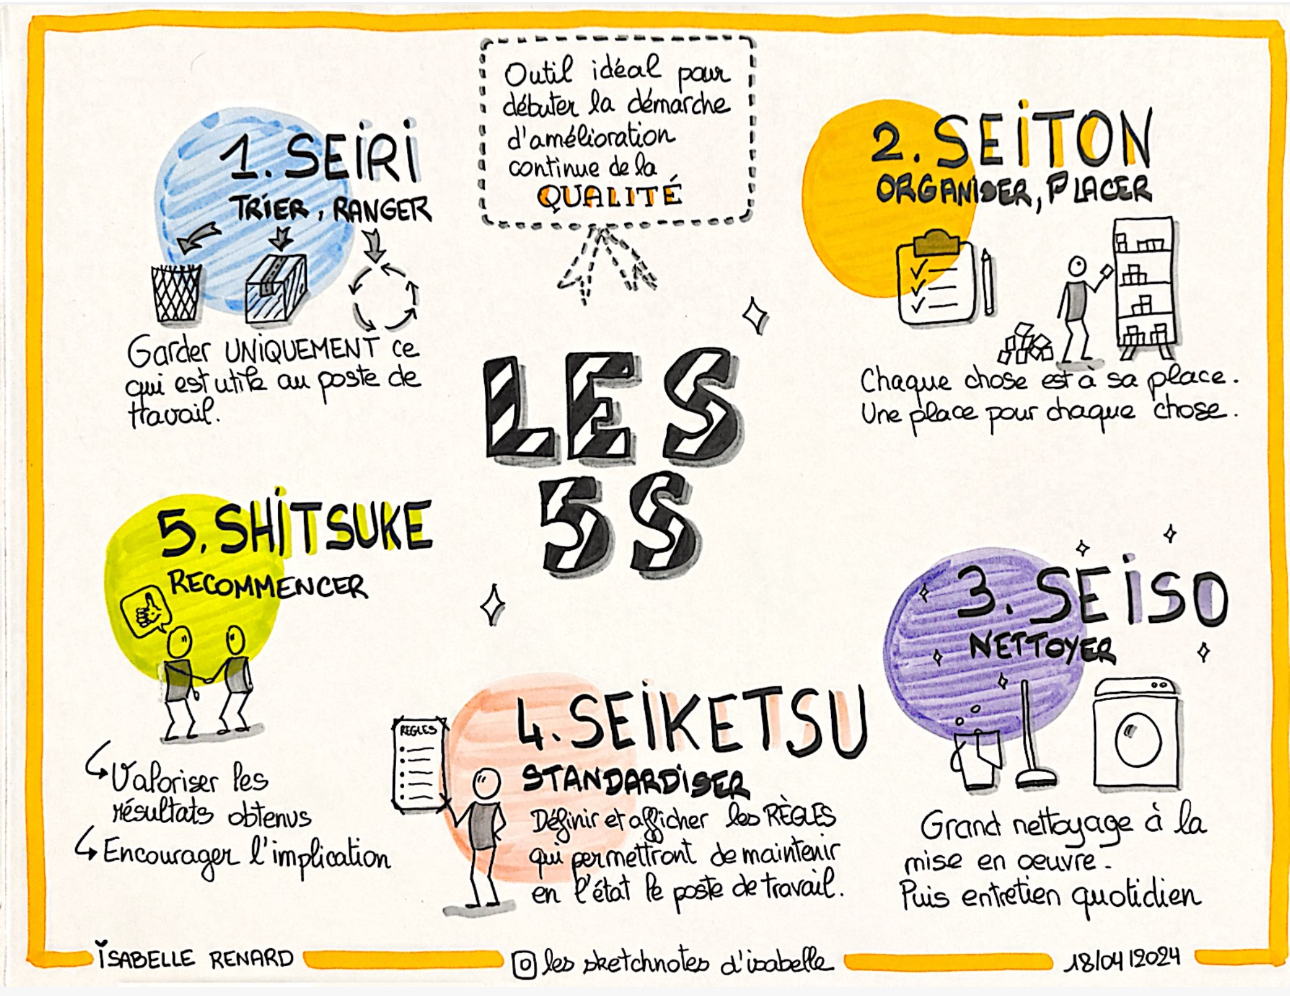 Outil idéal pour
débuter la démarche
d'amélioration
continue de la
QUALITÉ
1. SEiRi
TRiER, RANGER
Garder UNIQUEMENT ce
qui est utile au poste de
travail.
2. SEiTON
ORGANiSER, PLACER
Chaque chose est à sa place.
Une place pour chaque chose.
LES
5S
5. SHiTSUKE
RECOMMENCER
Valoriser les
résultats obtenus
Encourager l'implication
3. SEiSO
NETTOYER
Grand nettoyage à la
mise en oeuvre.
Puis entretien quotidien
RÈGLES
4. SEiKETSU
STANDARDiSER
Définir et afficher les RÈGLES
qui permettront de maintenir
en l'état le poste de travail.
iSABELLE RENARD
les sketchnotes d'isabelle
18/04/2024